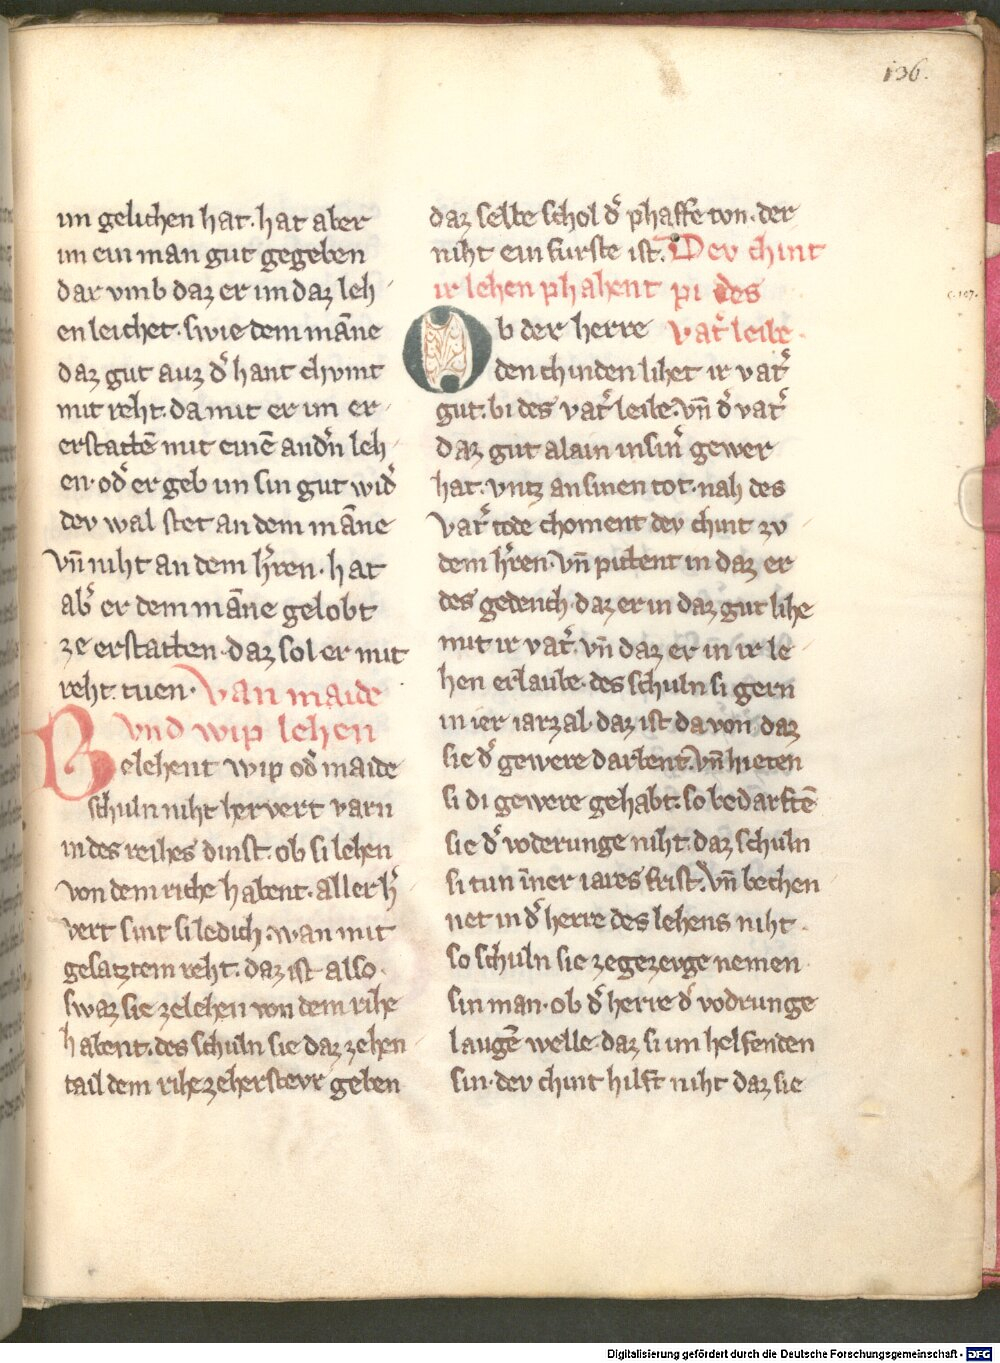 136.
im gelichen hat. hat aber
im ein man gut gegeben
dar vmb daz er im daz leh-
en leichet. swie dem mãne
daz gut auz d͛ hant chvmt
mit reht. da mit er im er-
erstattẽ mit einẽ andn̄ leh-
en. od͛ er geb im sin gut wid͛
dev wal stet an dem mãne
vn̄ niht an dem h͛ren. hat
ab͛ er dem mãne gelobt
ze erstatten. daz sol er mit
reht. tuen. Van maide
vnd wip lehen
Belehent wip od͛ maide
schuln niht hervert varn
in des reihes dinst. ob si lehen
von dem riche habent. aller h͛-
vert sint si ledich. wan mit
gesatztem reht. daz ist also.
swaz sie ze lehen von dem rihe
habent. des schuln sie daz zehen
tail dem rihe ze herstevr geben
daz selbe schol d͛ phaffe ton. der
niht ein furste ist. Dev chint
ir lehen phahent pi des
Ob der herre vat͛ leibe.
den chinden lihet ir vat͛
gut. bi des vat͛ leibe. vn̄ d͛ vat͛
daz gut alain in sin͛ gewer
hat. vntz an sinen tot. nah des
vat͛ tode choment dev chint zv
dem h͛ren. vn̄ pittent in daz er
des gedench. daz er in daz gut lihe
mit ir vat͛. vn̄ daz er in ir le-
hen erlaube. des schuln si gern
in ier iarzal. daz ist da von daz
sie d͛ gewere darbent. vn̄ hieten
si di gewere gehabt. so bedarftẽ
sie d͛ voderunge niht. daz schuln
si tun iñer iares frist. vn̄ bechen
net in d͛ herre des lehens niht.
so schuln sie ze gezevge nemen
sin man. ob d͛ herre d͛ vodrunge
laugẽ welle. daz si im helfenden
sin. dev chint hilft niht daz sie
Digitalisierung gefördert durch die Deutsche Forschungsgemeinschaft - DFG